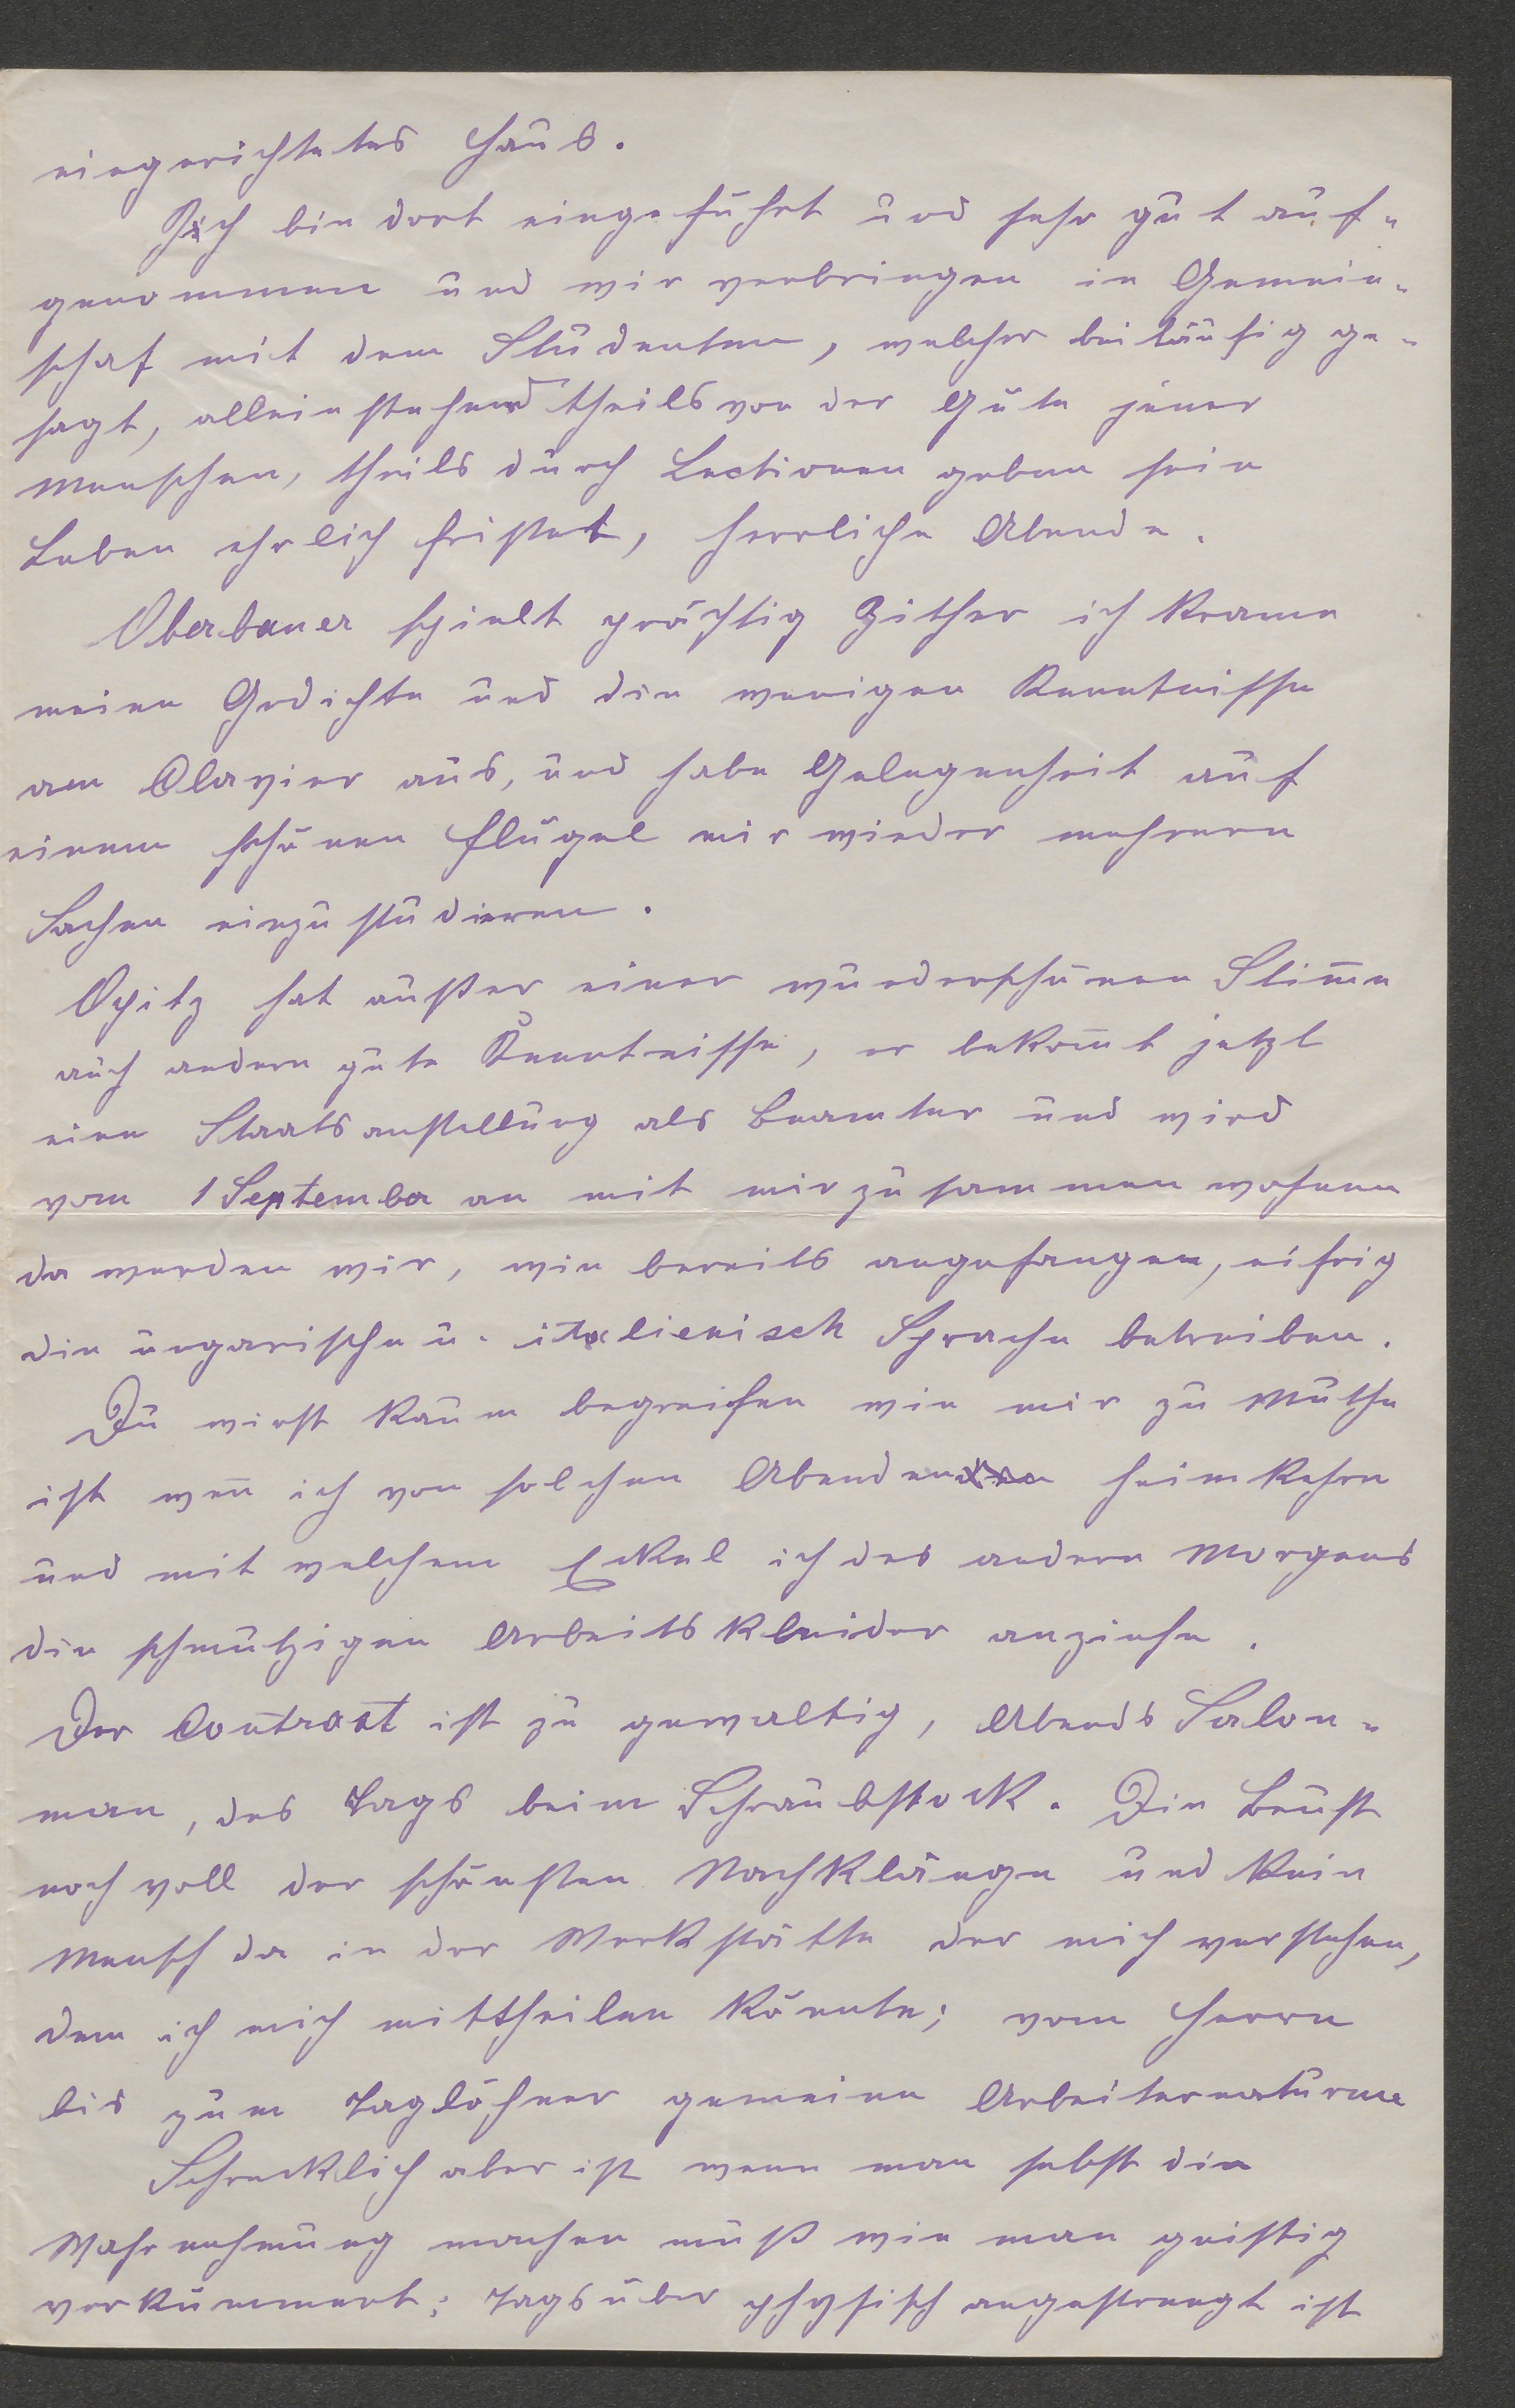 eingerichtetes Haus.
Ich bin dort eingeführt und sehr gut auf-
genommen und wir verbringen in Gemein-
schaf mit dem Studenten, welcher beiläufig ge-
sagt, alleinstehend theils von der Güte jener
Menschen, theils durch Lectionen geben sein
Leben ehrlich fristet, herrliche Abende.
Oberbauer spielt prächtig Zither ich krame
meine Gedichte und die wenigen Kenntnisse
am Clavier aus, und habe Gelegenheit auf
einem schönen Flügel mir wieder mehrere
Sachen einzustudieren.
Opitz hat außer einer wunderschönen Stim̅e
auch andere gute Kenntnisse, er bekom̅t jetzt
eine Staatsanstellung als Beamter und wird
vom 1 September an mit mir zusammen wohnen
da werden wir, wie bereits angefangen, eifrig
die ungarische u. italienisch Sprache betreiben.
Du wirst kaum begreifen wie mir zu Muthe
ist wen̅ ich von solchen Abenden heimkehre
und mit welchem Eckel ich des andern Morgens
die schmutzigen Arbeitskleider anziehe.
Der Contrast ist zu gewaltig, Abends Salon-
man, des Tags beim Schraubstock. Die Brust
noch voll der schönsten Nachklänge und kein
Mensch da in der Werkstätte der mich verstehen,
dem ich mich mittheilen könnte; vom Herrn
bis zum Taglöhner gemeine Arbeiternaturen
Schrecklich aber ist wenn man selbst die
Wahrnehmung machen muß wie man geistig
verkümmert; Tagsüber physisch angestrengt ist